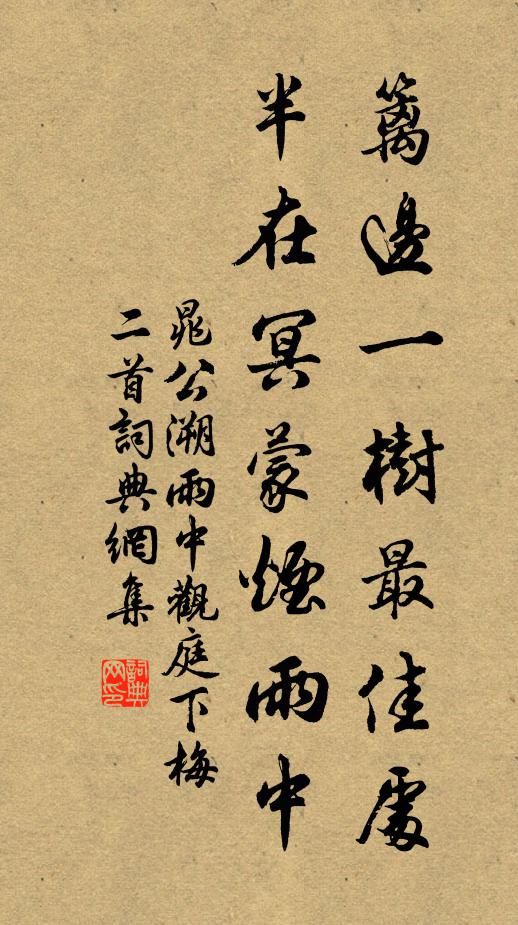 籬邊一樹最佳處
半在冥蒙煙雨中
晁公溯雨中觀庭下梅
二首詞典網集
詞典
网印